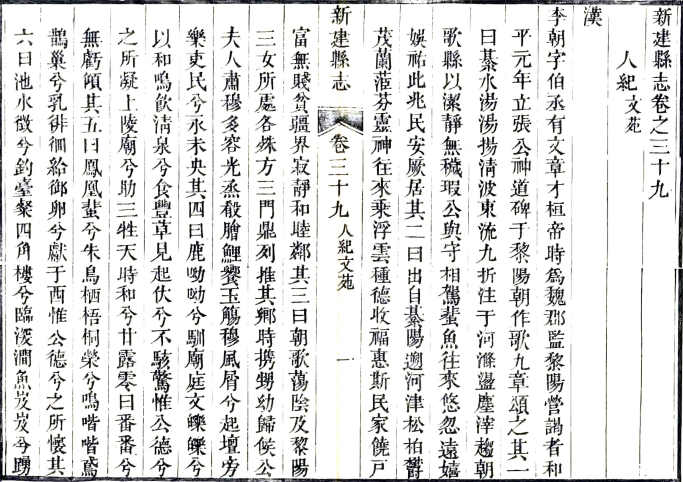 新建縣志卷之三十九
人紀文苑
漢
李朝字伯丞有文章才桓帝時爲魏郡監黎陽營謁者和
平元年立張公神道碑于黎陽朝作歌九章頌之其一
曰綦水湯湯揚清波東流九折注于河滌盪塵滓趨朝
歌縣以潔靜無穢瑕公與守相駕蜚魚往來悠忽遠嬉
娛祐此兆民安厥居其二曰出自綦陽遡河津松柏鬱
茂蘭茝芬靈神往來乘浮雲種德收福惠斯民家饒戸
新建縣志
卷三十九
人紀文苑
一
富無賤貧疆界寂靜和睦鄰其三曰朝歌蕩陰及黎陽
三女所處各殊方三門鼎列推其鄉時携甥幼歸候公
夫人肅穆多容光烝殽膾鯉饗玉觴穆風屑兮起壇旁
樂吏民兮永未央其四曰鹿呦呦兮馴廟庭文皪皪兮
以和鳴飲清泉兮食豐草見起伏兮不駭驚惟公德兮
之所凝上陵廟兮助三牲天時和兮甘露零曰番番兮
無虧傾其五曰鳳凰蜚兮朱鳥栖梧桐榮兮鳴喈喈鳶
鵲巢兮乳徘徊給御卵兮獻于西惟公德兮之所懷其
六曰池水徵兮釣臺粲四角樓兮臨深澗魚岌岌兮踴